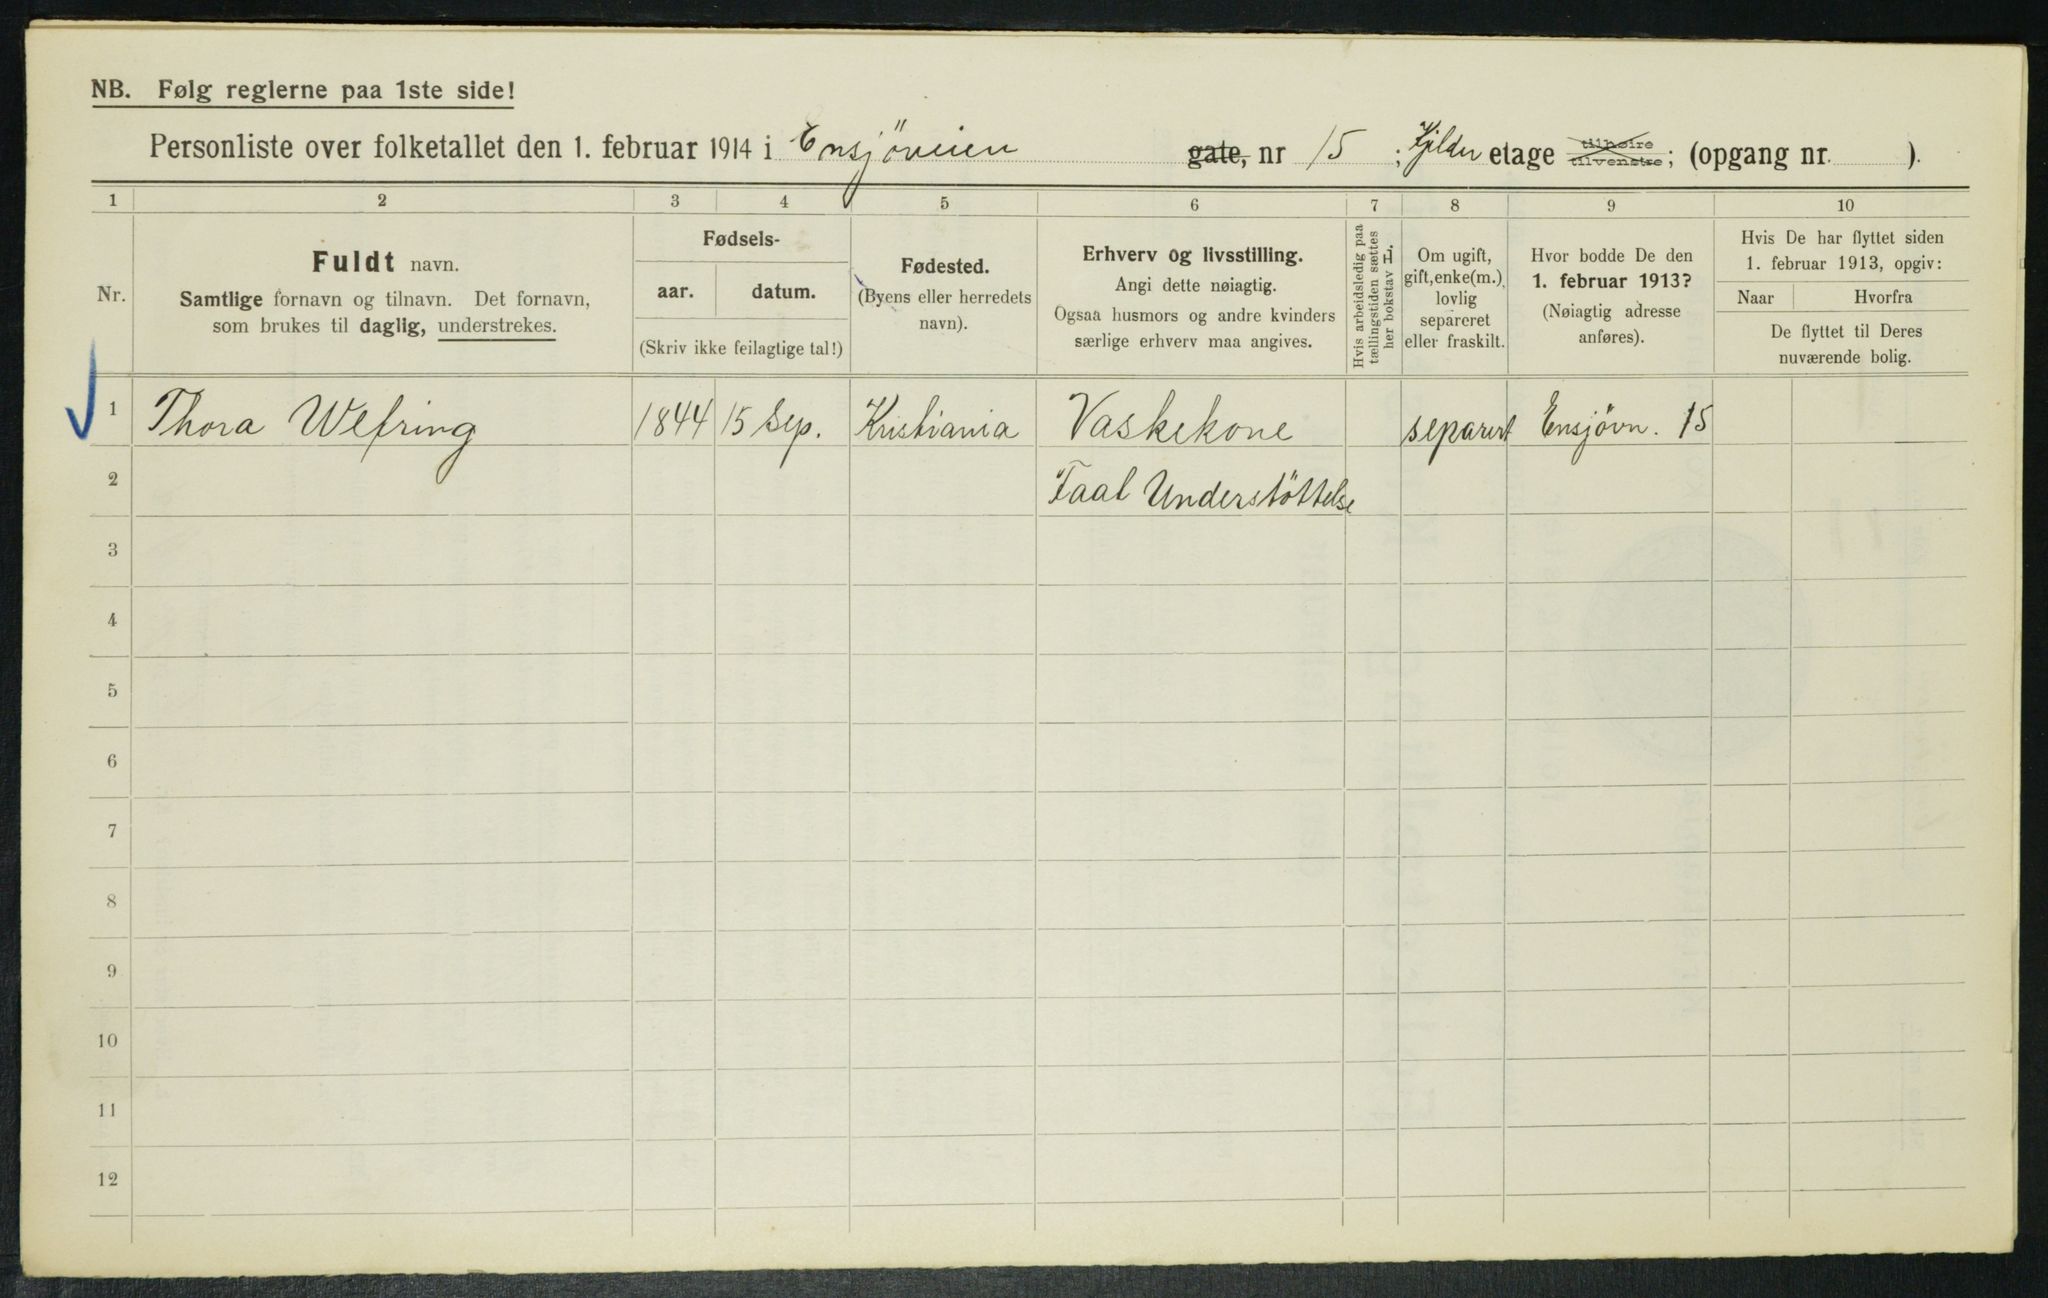 NB. Følg reglerne paa 1ste side!
Personliste over folketallet den 1. februar 1914 i Ensjöveien gate, nr 15 ; Kjelder etage tilhøire tilvenstre; (opgang nr. ).
1 2 3 4 5 6 7 8 9 10
Nr.
Fuldt navn.
Samtlige fornavn og tilnavn. Det fornavn,
som brukes til daglig, understrekes.
Fødsels-
aar. datum.
(Skriv ikke feilagtige tal!)
Fødested.
(Byens eller herredets
navn).
Erhverv og livsstilling.
Angi dette nøiagtig.
Ogsaa husmors og andre kvinders
særlige erhverv maa angives.
Hvis arbeidsledig paa
tællingstiden sættes
her bokstav L.
Om ugift,
gift, enke(m.),
lovlig
separeret
eller fraskilt.
Hvor bodde De den
1. februar 1913?
(Nøiagtig adresse
anføres).
Hvis De har flyttet siden
1. februar 1913, opgiv:
Naar Hvorfra
De flyttet til Deres
nuværende bolig.
1 Thora Wefring 1844 15 Sep. Kristiania Vaskekone separert Ensjövn. 15
2 Faal Understöttelse
3
4
5
6
7
8
9
10
11
12